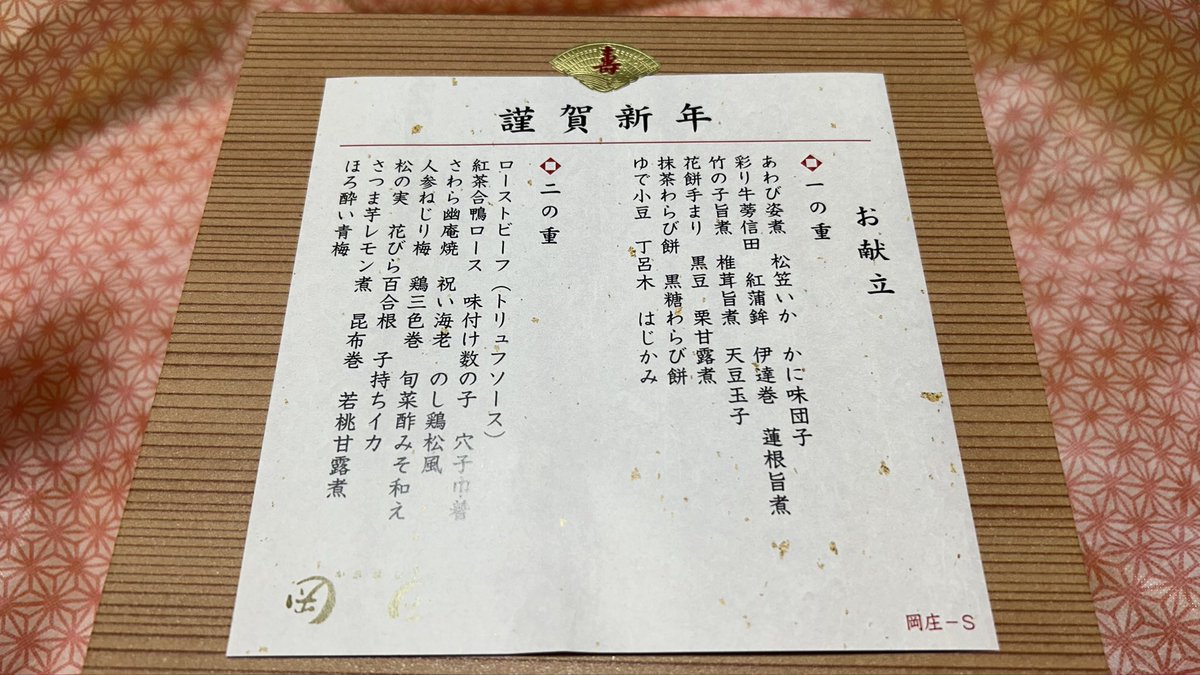 寿
謹賀新年
お献立
一の重
あわび姿煮 松笠いか かに味団子
彩り牛蒡信田 紅蒲鉾 伊達巻 蓮根旨煮
竹の子旨煮 椎茸旨煮 天豆玉子
花餅手まり 黒豆 栗甘露煮
抹茶わらび餅 黒糖わらび餅
ゆで小豆 丁呂木 はじかみ
二の重
ローストビーフ(トリュフソース)
紅茶合鴨ロース 味付け数の子 穴子巾着
さわら幽庵焼 祝い海老 のし鶏松風
人参ねじり梅 鶏三色巻 旬菜酢みそ和え
松の実 花びら百合根 子持ちイカ
さつま芋レモン煮 昆布巻 若桃甘露煮
ほろ酔い青梅
岡庄-S